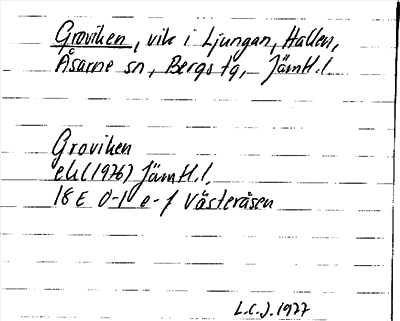 Groviken, vik i Ljungan, Hallen,
Åsarne sn, Bergs tg, Jämtl.l.
Groviken
ek (1976) Jämtl.l.
18 E 0-1 e-f Västeråsen
L.C.J. 1977